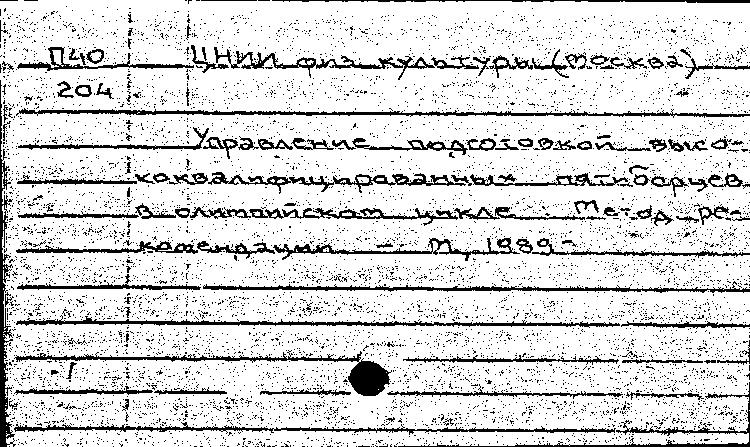 П40 ЦНИИ физ культуры (Москва)
204
Управление подготовкой высо-
коквалифицированных пятиборцев
в олимпийском цикле : Метод ре-
комендации - М, 1989-
-1